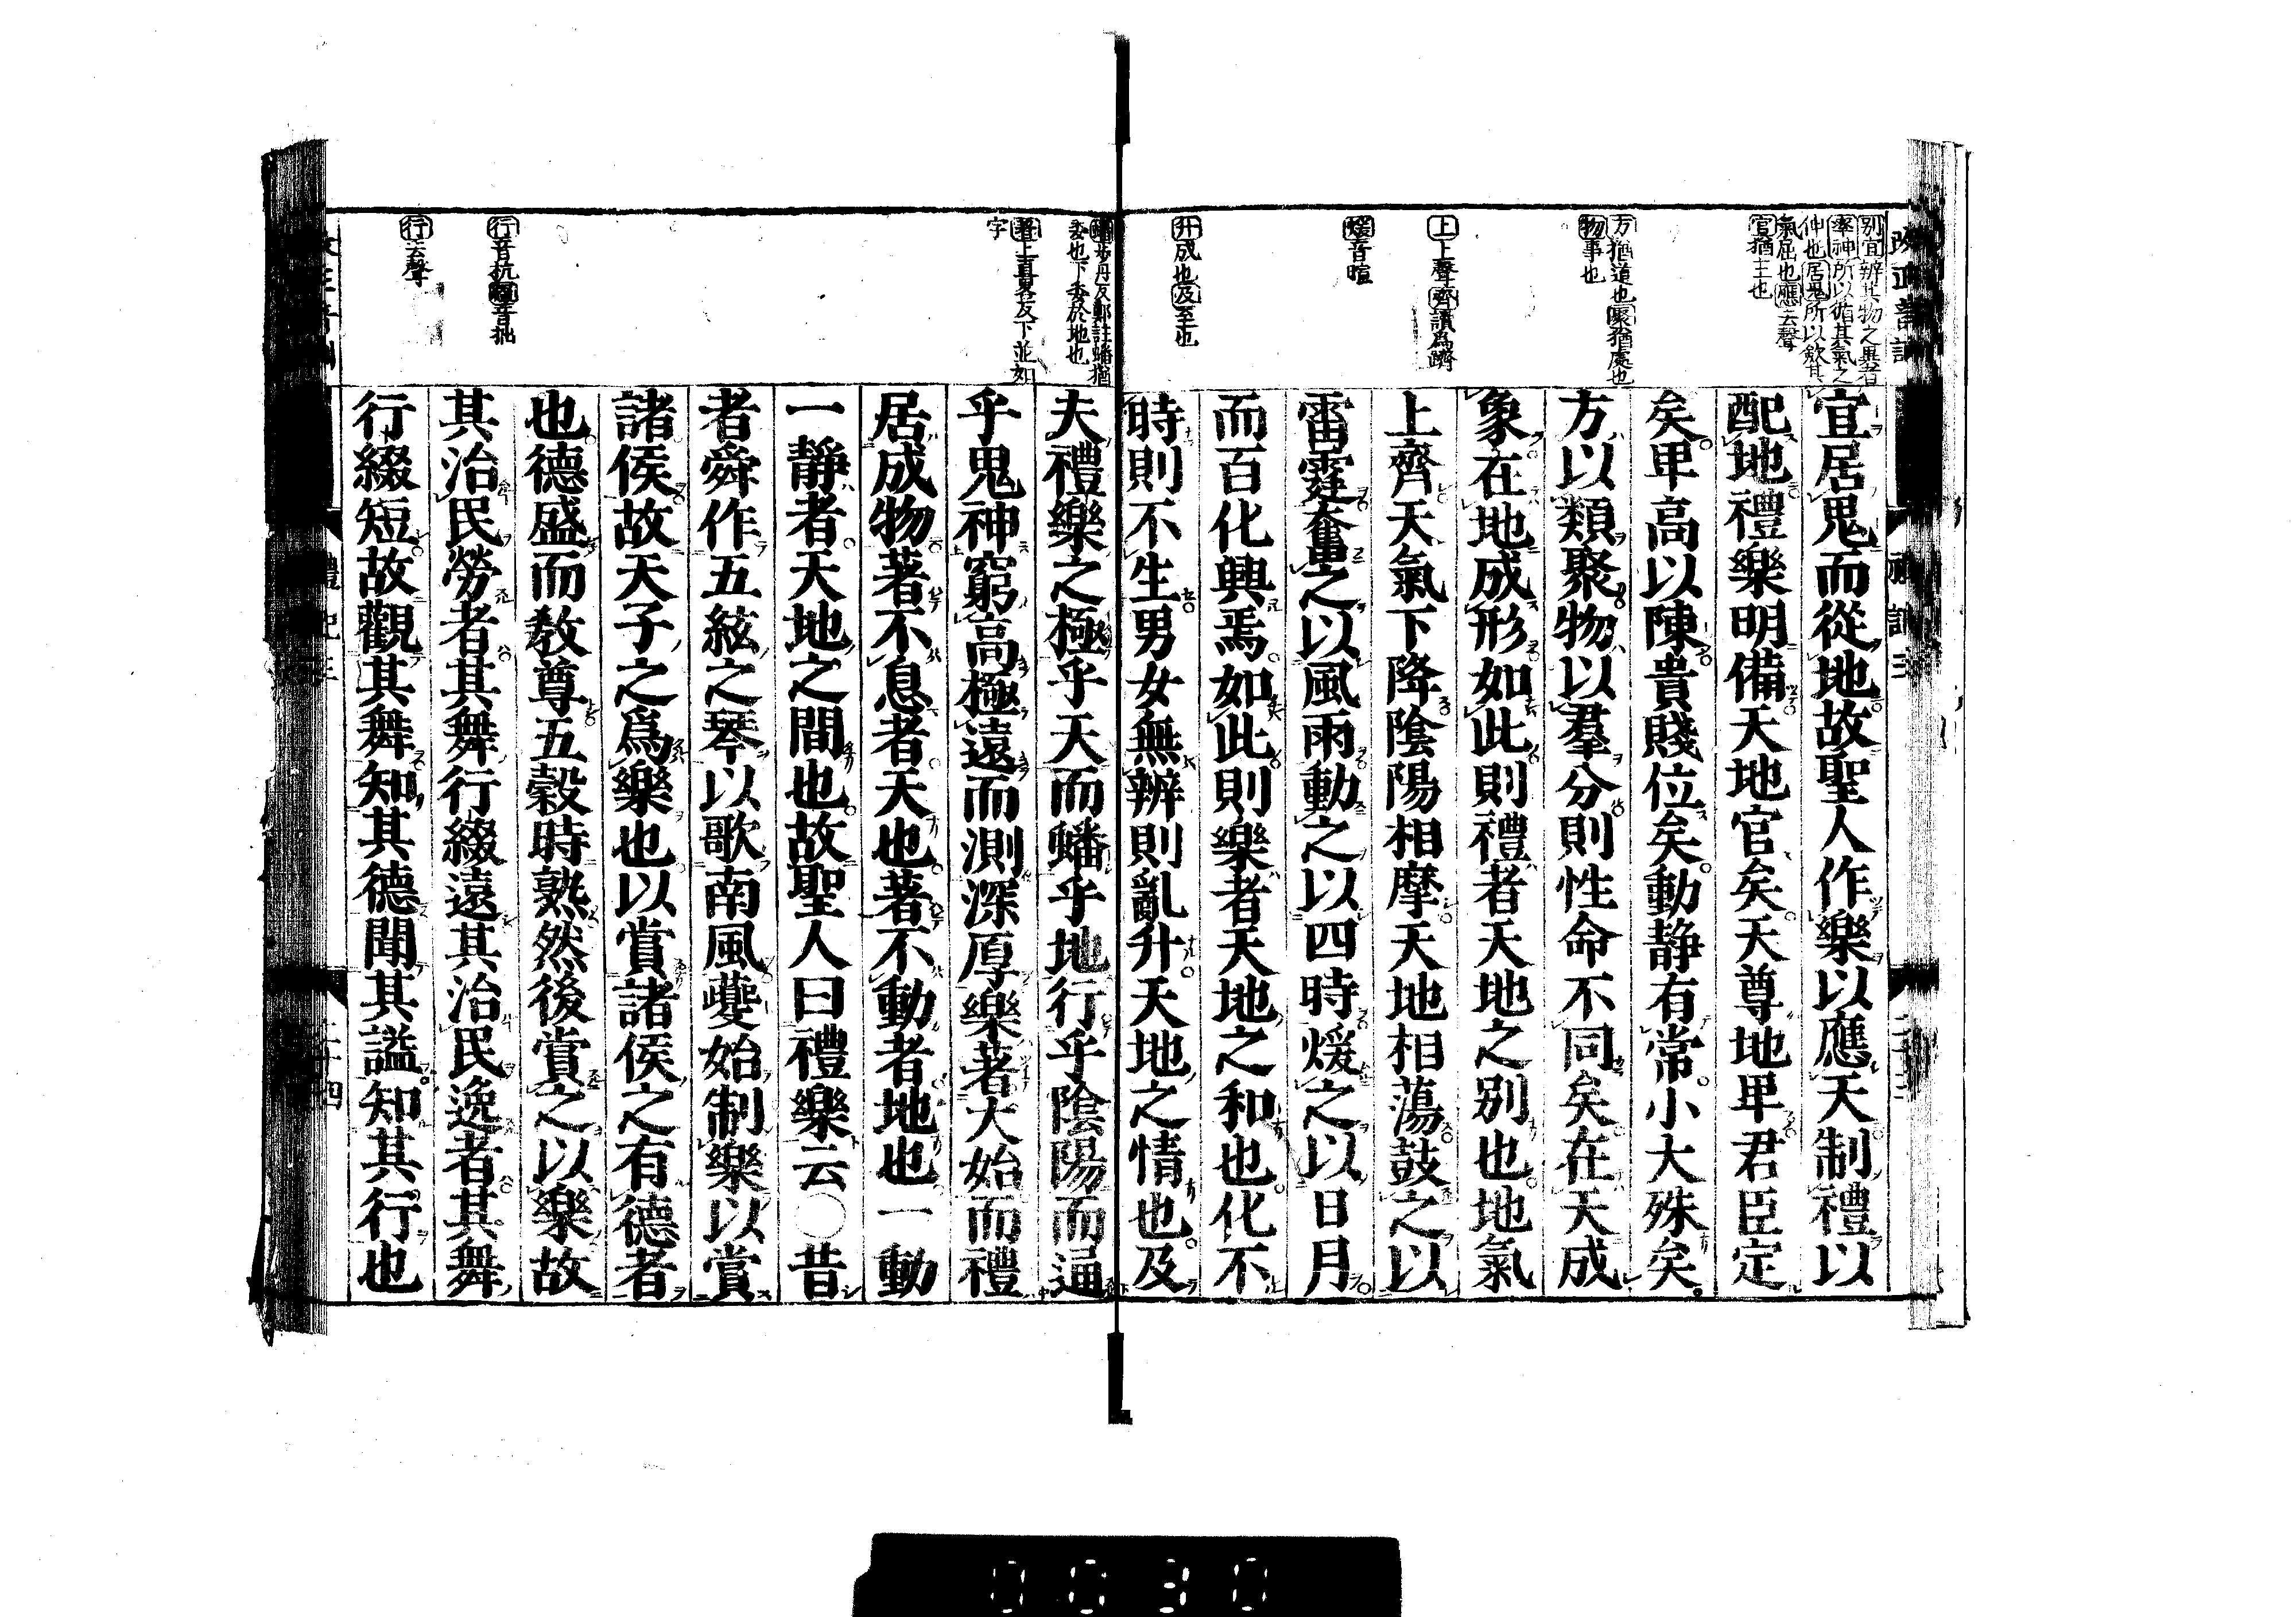 別宜辨其物之異者
率神所以循其氣之
伸也居鬼所以斂其
氣屈也應去聲
官猶主也
方猶道也聚猶處也
物事也
上上聲齊讀爲躋
煖音暄
升成也及至也
宜居鬼而從地故聖人作樂以應天制禮以
配地禮樂明備天地官矣天尊地卑君臣定
矣卑高以陳貴賤位矣動靜有常小大殊矣
方以類聚物以羣分則性命不同矣在天成
象在地成形如此則禮者天地之別也地氣
上齊天氣下降陰陽相摩天地相蕩鼓之以
雷霆奮之以風雨動之以四時煖之以日月
而百化興焉如此則樂者天地之和也化不
時則不生男女無辨則亂升天地之情也及
蟠步丹反鄭註蟠猶
委也下委於地也
著上直畧反下並如
字
行音抗綴音拙
行去聲
夫禮樂之極乎天而蟠乎地行乎陰陽而通
乎鬼神窮高極遠而測深厚樂著大始而禮
居成物著不息者天也著不動者地也一動
一靜者天地之間也故聖人曰禮樂云○昔
者舜作五絃之琴以歌南風夔始制樂以賞
諸侯故天子之爲樂也以賞諸侯之有德者
也德盛而教尊五穀時熟然後賞之以樂故
其治民勞者其舞行綴遠其治民逸者其舞
行綴短故觀其舞知其德聞其謚知其行也
禮記三
二十四
0030